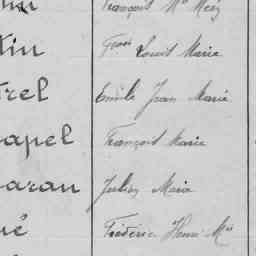 François Mie
tin Louis Marie
trel Emile Jean Marie
apel François Marie
aran Julien Marie
é Frédéric Henri Mie